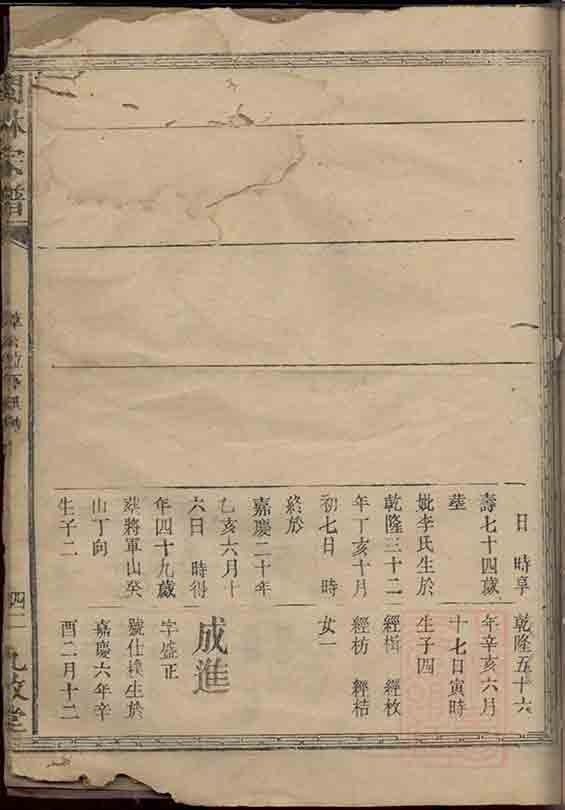 日　時享
壽七十四歲
塟
妣李氏生於
乾隆三十二
年丁亥十月
初七日　時
終於
嘉慶二十年
乙亥六月十
六日　時得
年四十九歲
塟將軍山癸
山丁向
生子二
乾隆五十六
年辛亥六月
十七日寅時
生子四
經楫　經枚
經枋　經桔
女一
成進
字盛正
號仕樸生於
嘉慶六年辛
酉二月十二
林家譜
四一
九牧堂